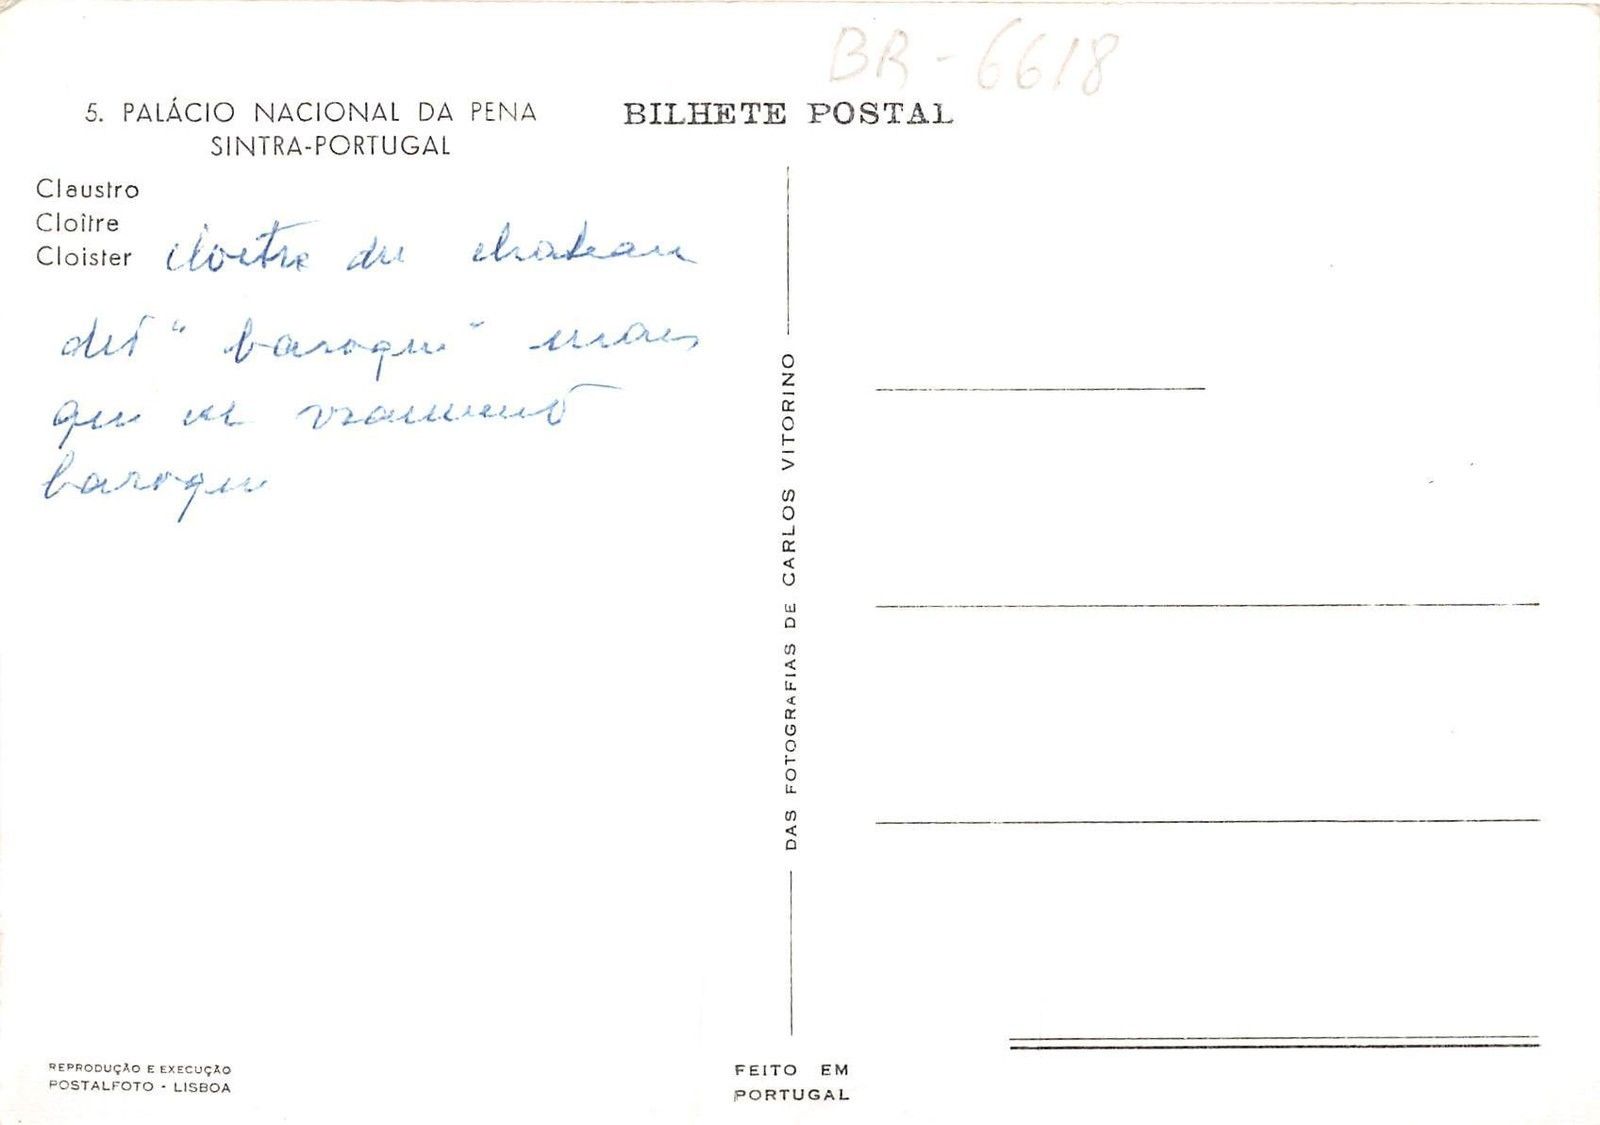 BR-6618
5. PALÁCIO NACIONAL DA PENA
SINTRA-PORTUGAL
BILHETE POSTAL
Claustro
Cloître
Cloister
cloitre du chateau
dit "baroque" mais
que
vraiment
baroque
DAS FOTOGRAFIAS DE CARLOS VITORINO
REPRODUÇÃO E EXECUÇÃO
POSTALFOTO - LISBOA
FEITO EM
PORTUGAL